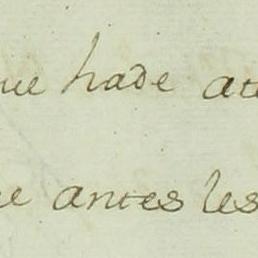 ue hade at
e antes les